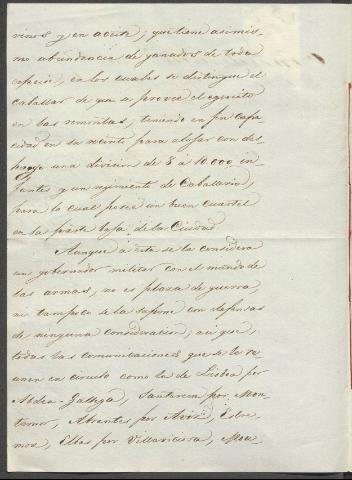 vinos y en aceite; que tiene asimis-
mo abundancia de ganados de toda
especie, en los cuales se distingue el
caballar de que se provee el egército
en las remontas; teniendo en fin capa
cidad en su recinto para alojar con des-
ahogo una division de 8 à 10.000 in-
fantes y un regimiento de Caballeria,
para lo cual posee un buen cuartel
en la parte baja de la Ciudad.
Aunque à esta se la considera
un gobernador militar con el mando de
las armas, no es plaza de guerra,
ni tampoco se la supone con defensas
de ninguna consideracion; asi que,
todas las comunicaciones que se la re
unen en circulo como la de Lisboa por
Aldea-Gallega, Santarem por Mon-
temor, Abrantes por Aviz, Estre
moz, Elbas por Villaviciosa, Mou-